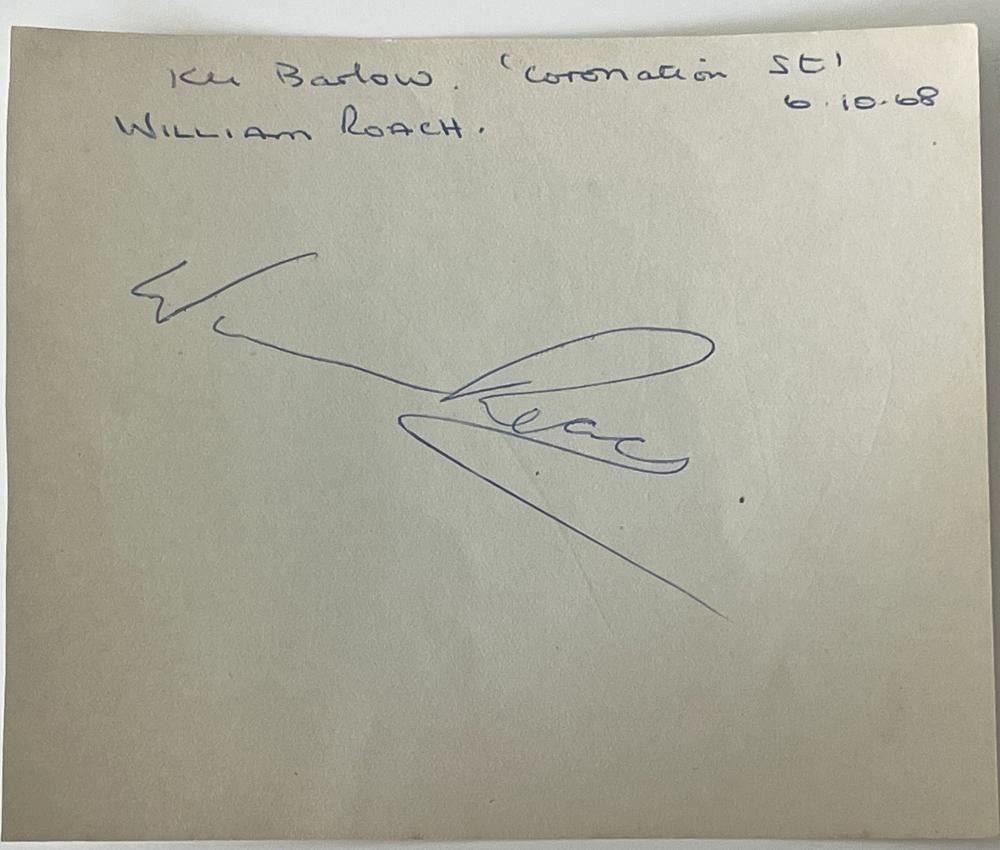 Ken Barlow. 'Coronation St'
6.10.68
WILLIAM ROACH.